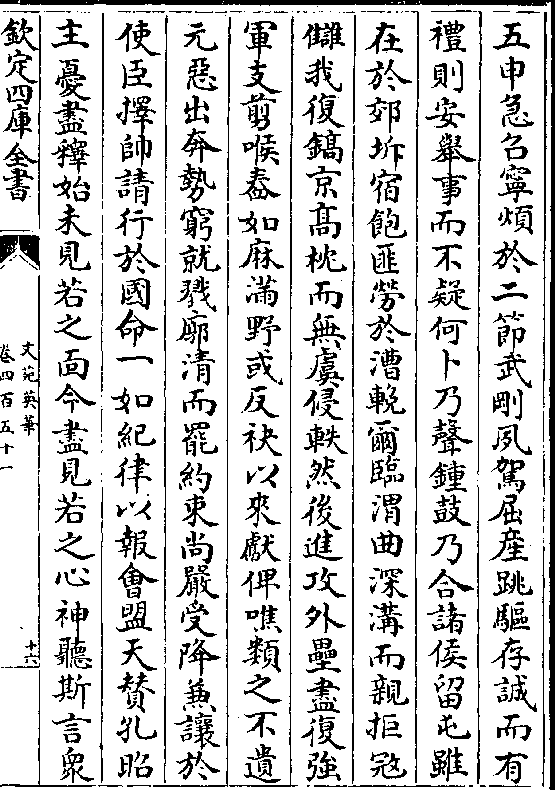 五申急召寧煩於二節武剛夙駕屈産跳驅存誠而有
禮則安舉事而不疑何卜乃聲鍾鼓乃合諸侯留屯雖
在於郊坼宿飽匪勞於漕輓爾臨渭曲深溝而親拒冦
讎我復鎬京髙枕而無虞侵軼然後進攻外壘盡復強
軍支剪喉舂如麻滿野或反袂以來獻俾噍類之不遺
元惡出奔勢窮就戮廓清而罷約束尚嚴受降蕪讓於
使臣擇帥請行於國命一如紀律以報㑹盟天賛孔昭
主憂盡釋始未見若之面今盡見若之心神聽斯言衆
欽定四庫全書
文苑英華
卷四百五十一
十六